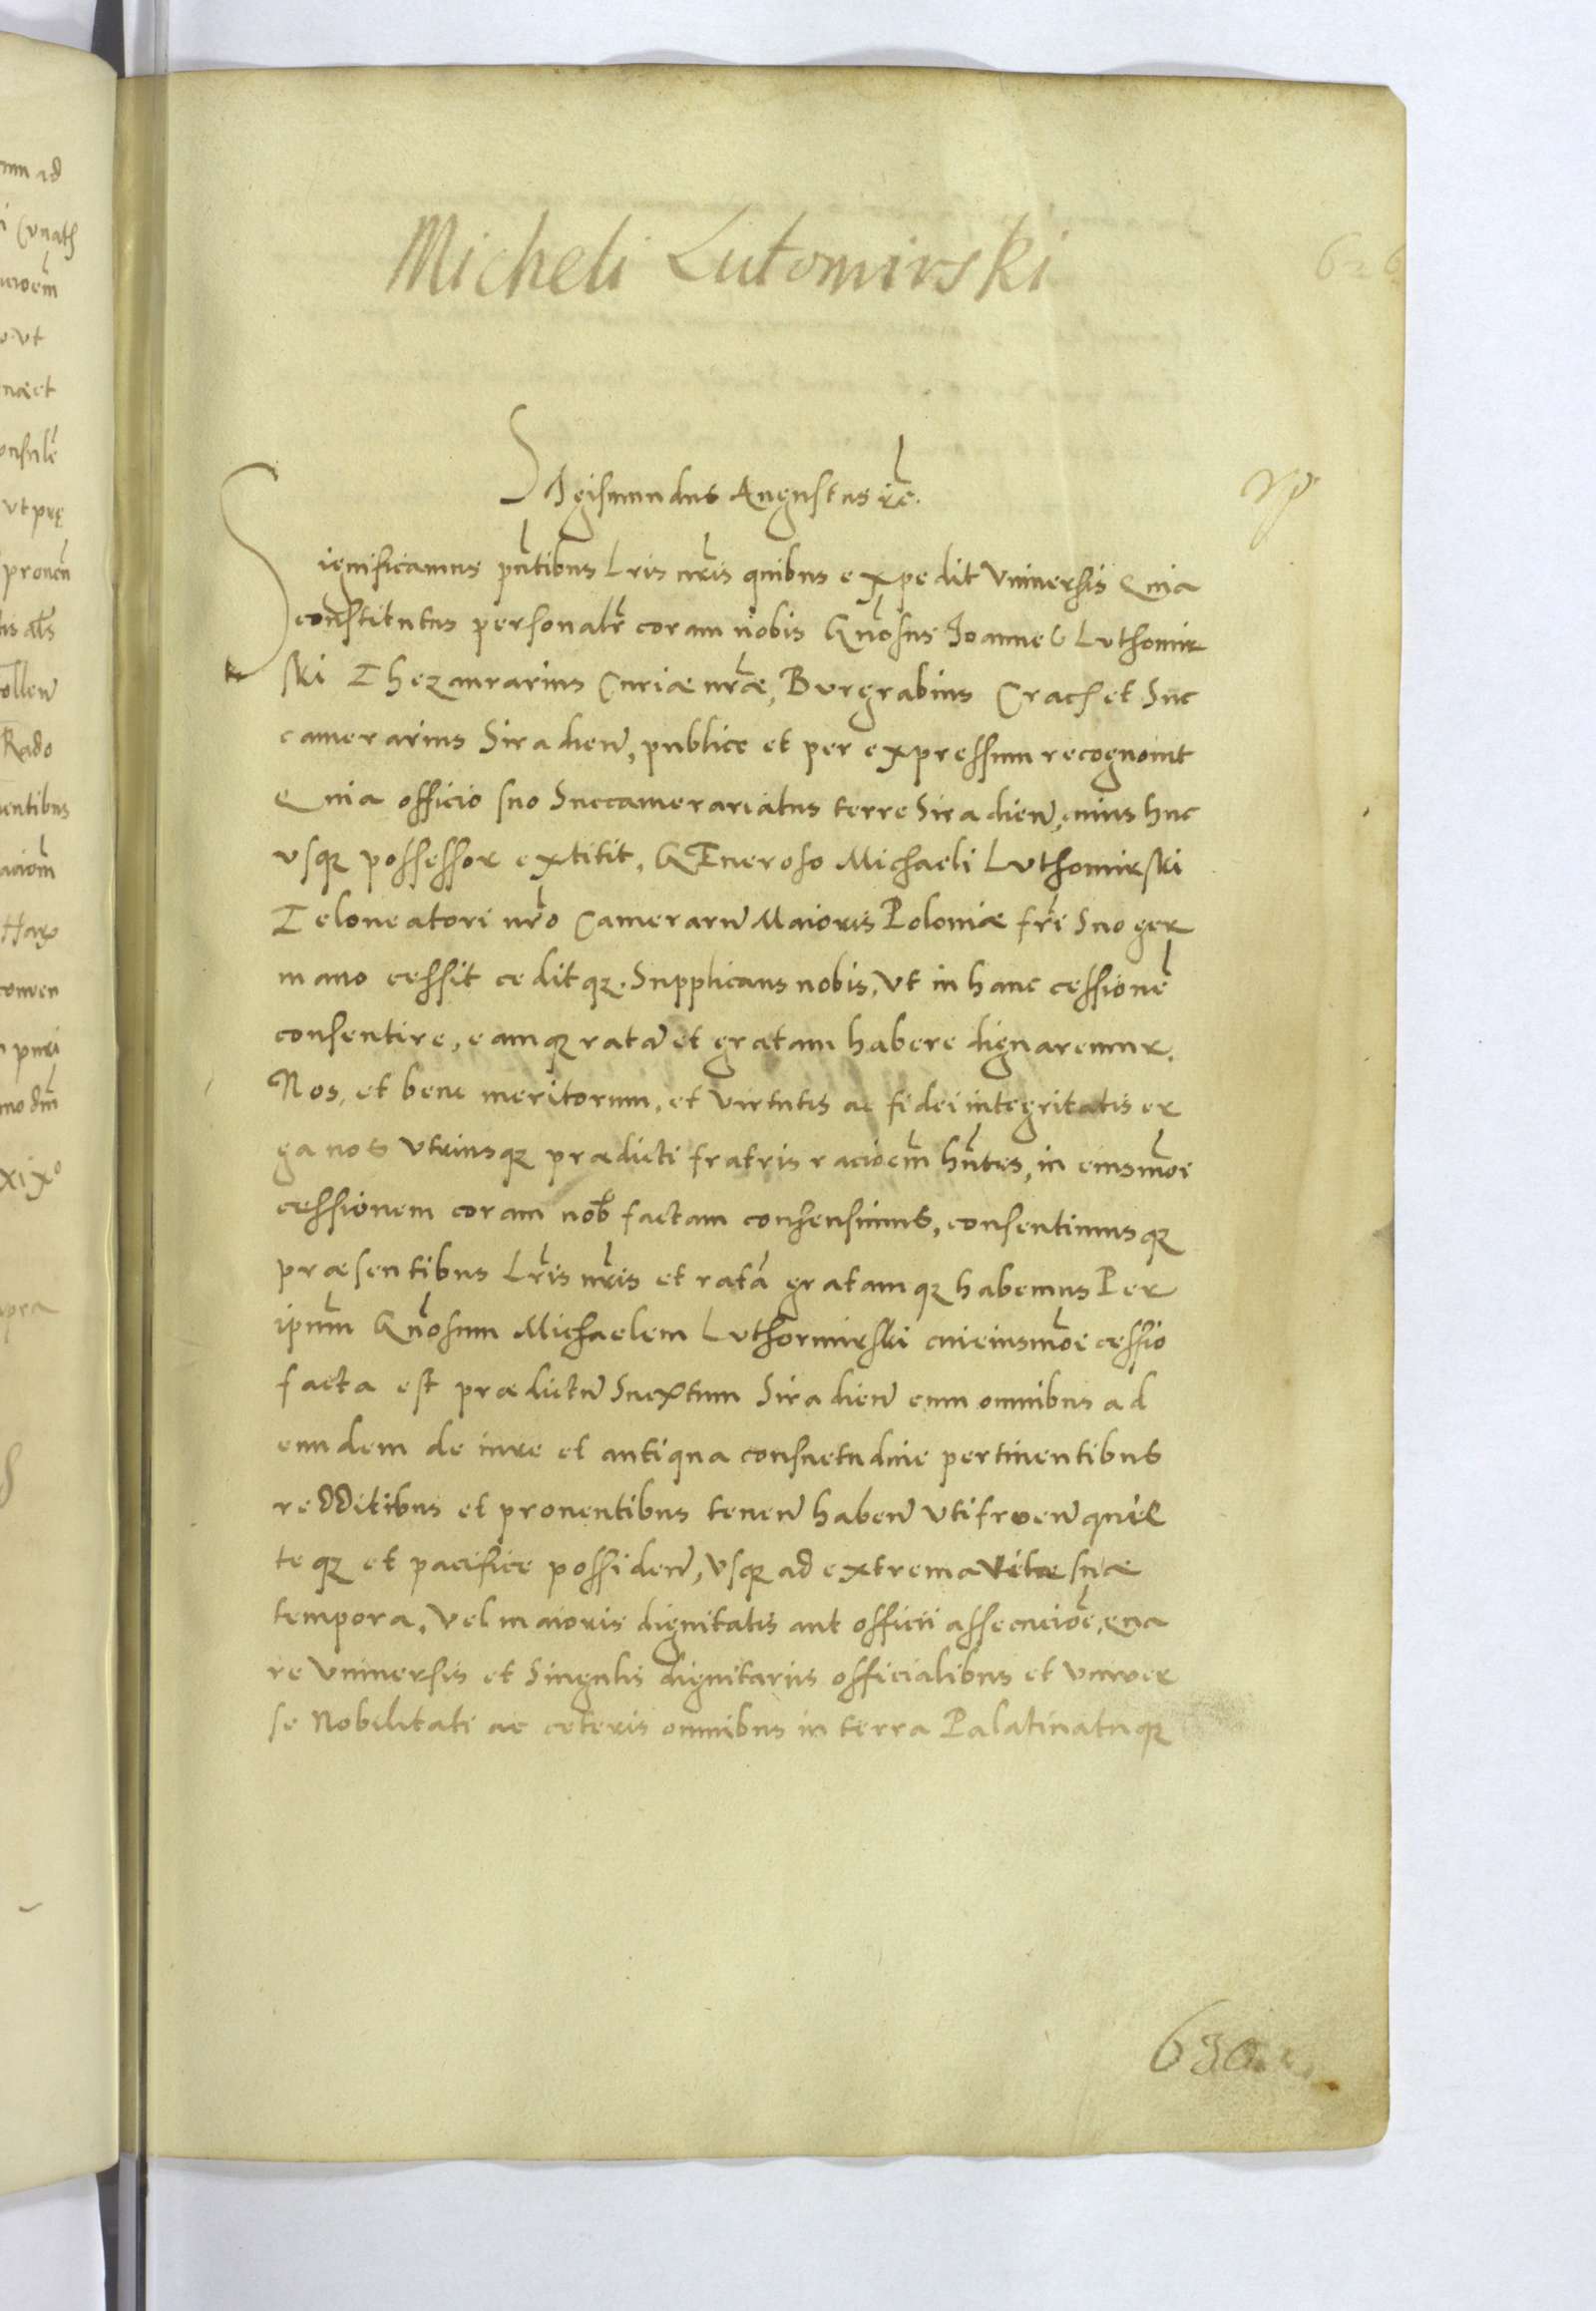 Micheli Lutomirski
626
Sigismundus Augustus rc̃.
Significamus pñtibus Lris nr̃is quibus expedit Vniversis Quia
constitutus personalr̃ coram nobis Gñosus Joannes Luthomir
ski Thezaurarius Curiæ nr̃æ, Burgrabius Crach et Suc
camerarius Siradien̄, publice et per expressum recognovit
Quia officio suo Succamerariatus terre Siradien̄, cuius huc
usq; possessor extitit, GEneroso Michaeli Luthomirski
Teloneatori nr̃o Camerarū Maioris Poloniæ fr̃i Suo ger
mano cessit ceditq;. Supplicans nobis, Vt in hanc cessionē
consentire, eamq; ratā et gratam habere dignaremur.
Nos, et bene meritorum, et virtutis ac fidei integritatis er
ga nos Vtriusq; prædicti fratris racioem̃ hñtes, in eiusmõi
cessionem coram nob̃ factam consensimus, consentimusq;
præsentibus Lr̃is nr̃is et ratā gratamq; habemus Per
ipsum̃ Gñosum Michaelem Luthormirski cui eiusmõi cessio
facta est prædictū Sucxtum Siradien̄ cum omnibus ad
eundem de iure et antiqua consuetudine pertinentibus
redditibus et proventibus tenen̄ haben̄ Vtifruen̄ quie
teq; et pacifice possiden̄, Vsq; ad extrema vitæ suæ
tempora, Vel maioris dignitatis aut officii assecucioẽ, qua
re Vniversis et Singulis dignitariis officialibus et Vniver
se Nobilitati ac ceteris omnibus in terra Palatinatuq;
630
mm ad
Cunath
vt
næ et
vt prę
proven̄
Rado
entibus
Hax
conven
puri
mo dm̃
xixo
pra